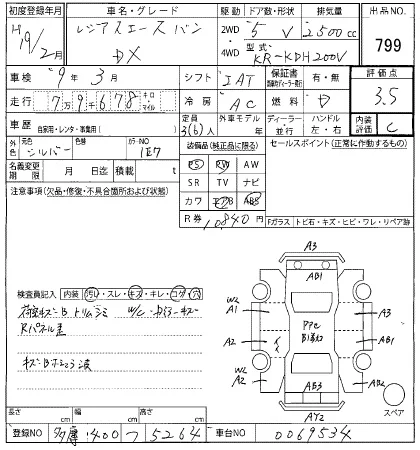 初度登録年月 車名・グレード 駆動 ドア数・形状 排気量 出品NO.
H19/2月 レジアスエース バン DX 2WD 4WD 5 V 2500cc 799
型式 KR-KDH200V
車検 9年3月 シフト IAT 保証書 有・無 評価点
走行 79678 キロ マイル 冷房 AC 燃料 D 3.5
車歴 自家用・レンタ・事業用( ) 定員 3(6)人 外車モデル 年 ディーラー・並行 ハンドル 左・右 内装評価 C
外色 元色 シルバー 色替 カラーNO 1E7 装備品(純正品に限る) セールスポイント(正常に作動するもの)
名義変更期限 月 日迄 積載 t PS PW AW
注意事項(欠品・修復・不具合箇所および状態) SR TV ナビ
カワ エアB ABS
R券 10840円 Fガラス トビ石・キズ・ヒビ・ワレ・リペア跡
検査員記入 内装 汚レ・スレ・キズ・キレ・コゲ・穴
Rパネル
A3
AB1
W2 A1
A3
A2
AB1
W2 A2
AB2
AB3
AY2
スペア
長さ cm 幅 cm 高さ cm
登録NO 多摩 400 つ 5264 車台NO 0069534